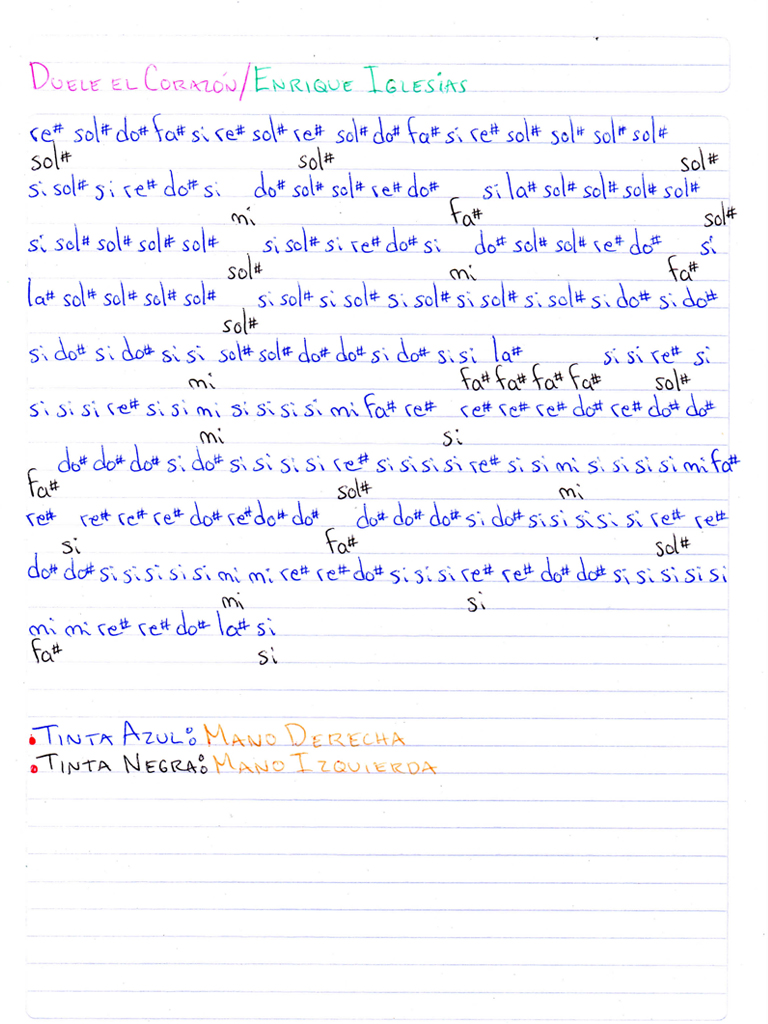 DUELE EL CORAZÓN/ENRIQUE IGLESIAS
re# sol# do# fa# si re# sol# re# sol# do# fa# si re# sol# sol# sol# sol#
sol# sol# sol#
si sol# si re# do# si do# sol# sol# re# do# si la# sol# sol# sol# sol#
mi fa# sol#
si sol# sol# sol# sol# si sol# si re# do# si do# sol# sol# re# do# si
sol# mi fa#
la# sol# sol# sol# sol# si sol# si sol# si sol# si sol# si sol# si do# si do#
sol#
si do# si do# si si sol# sol# do# do# si do# si si la# si si re# si
mi fa# fa# fa# fa# sol#
si si si re# si si mi si si si si mi fa# re# re# re# re# do# re# do# do#
mi si
do# do# do# si do# si si si si re# si si si si re# si si mi si si si si mi fa#
fa# sol# mi
re# re# re# re# do# re# do# do# do# do# do# si do# si si si si si re# re#
si fa# sol#
do# do# si si si si si mi mi re# re# do# si si si re# re# do# do# si si si si si
mi si
mi mi re# re# do# la# si
fa# si
• TINTA AZUL: MANO DERECHA
• TINTA NEGRA: MANO IZQUIERDA